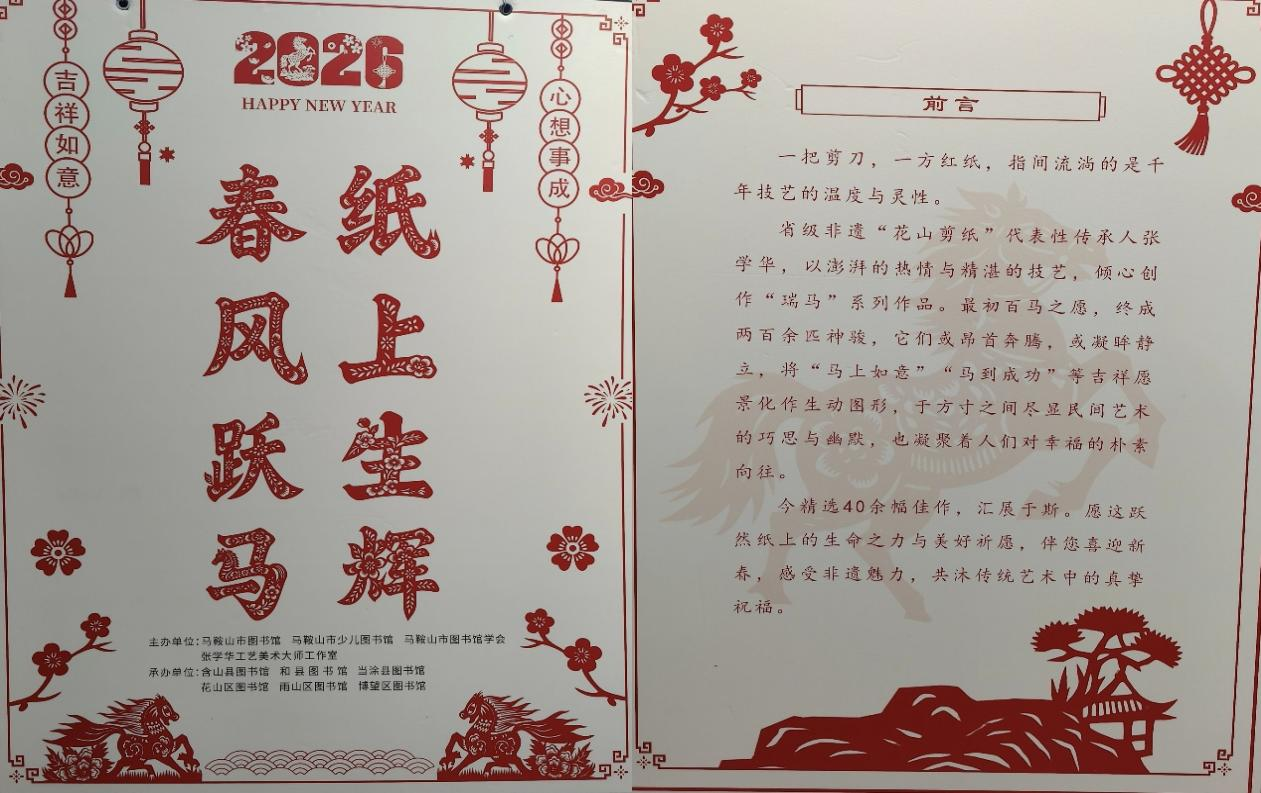 2026
HAPPY NEW YEAR
吉祥如意
心想事成
春风跃马
纸上生辉
主办单位:马鞍山市图书馆 马鞍山市少儿图书馆 马鞍山市图书馆学会
张学华工艺美术大师工作室
承办单位:含山县图书馆 和县图书馆 当涂县图书馆
花山区图书馆 雨山区图书馆 博望区图书馆
前言
一把剪刀，一方红纸，指间流淌的是千
年技艺的温度与灵性。
省级非遗“花山剪纸”代表性传承人张
学华，以澎湃的热情与精湛的技艺，倾心创
作“瑞马”系列作品。最初百马之愿，终成
两百余匹神骏，它们或昂首奔腾，或凝眸静
立，将“马上如意”“马到成功”等吉祥愿
景化作生动图形，于方寸之间尽显民间艺术
的巧思与幽默，也凝聚着人们对幸福的朴素
向往。
今精选40余幅佳作，汇展于斯。愿这跃
然纸上的生命之力与美好祈愿，伴您喜迎新
春，感受非遗魅力，共沐传统艺术中的真挚
祝福。